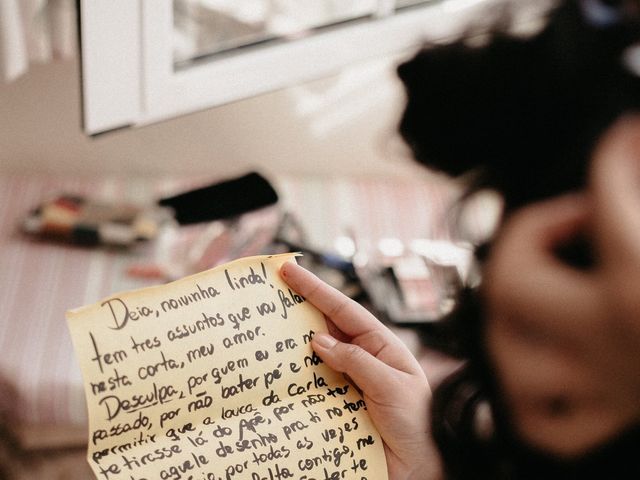 Deia, noivinha linda!
tem três assuntos que vou falar
nesta carta, meu amor.
Desculpa, por quem eu era no
passado, por não bater pé e não
permitir que a louca da Carla
te tirasse lá do por não ter
aquele desenho pra ti no tem
por todas as vezes
falta contigo, me
ter te